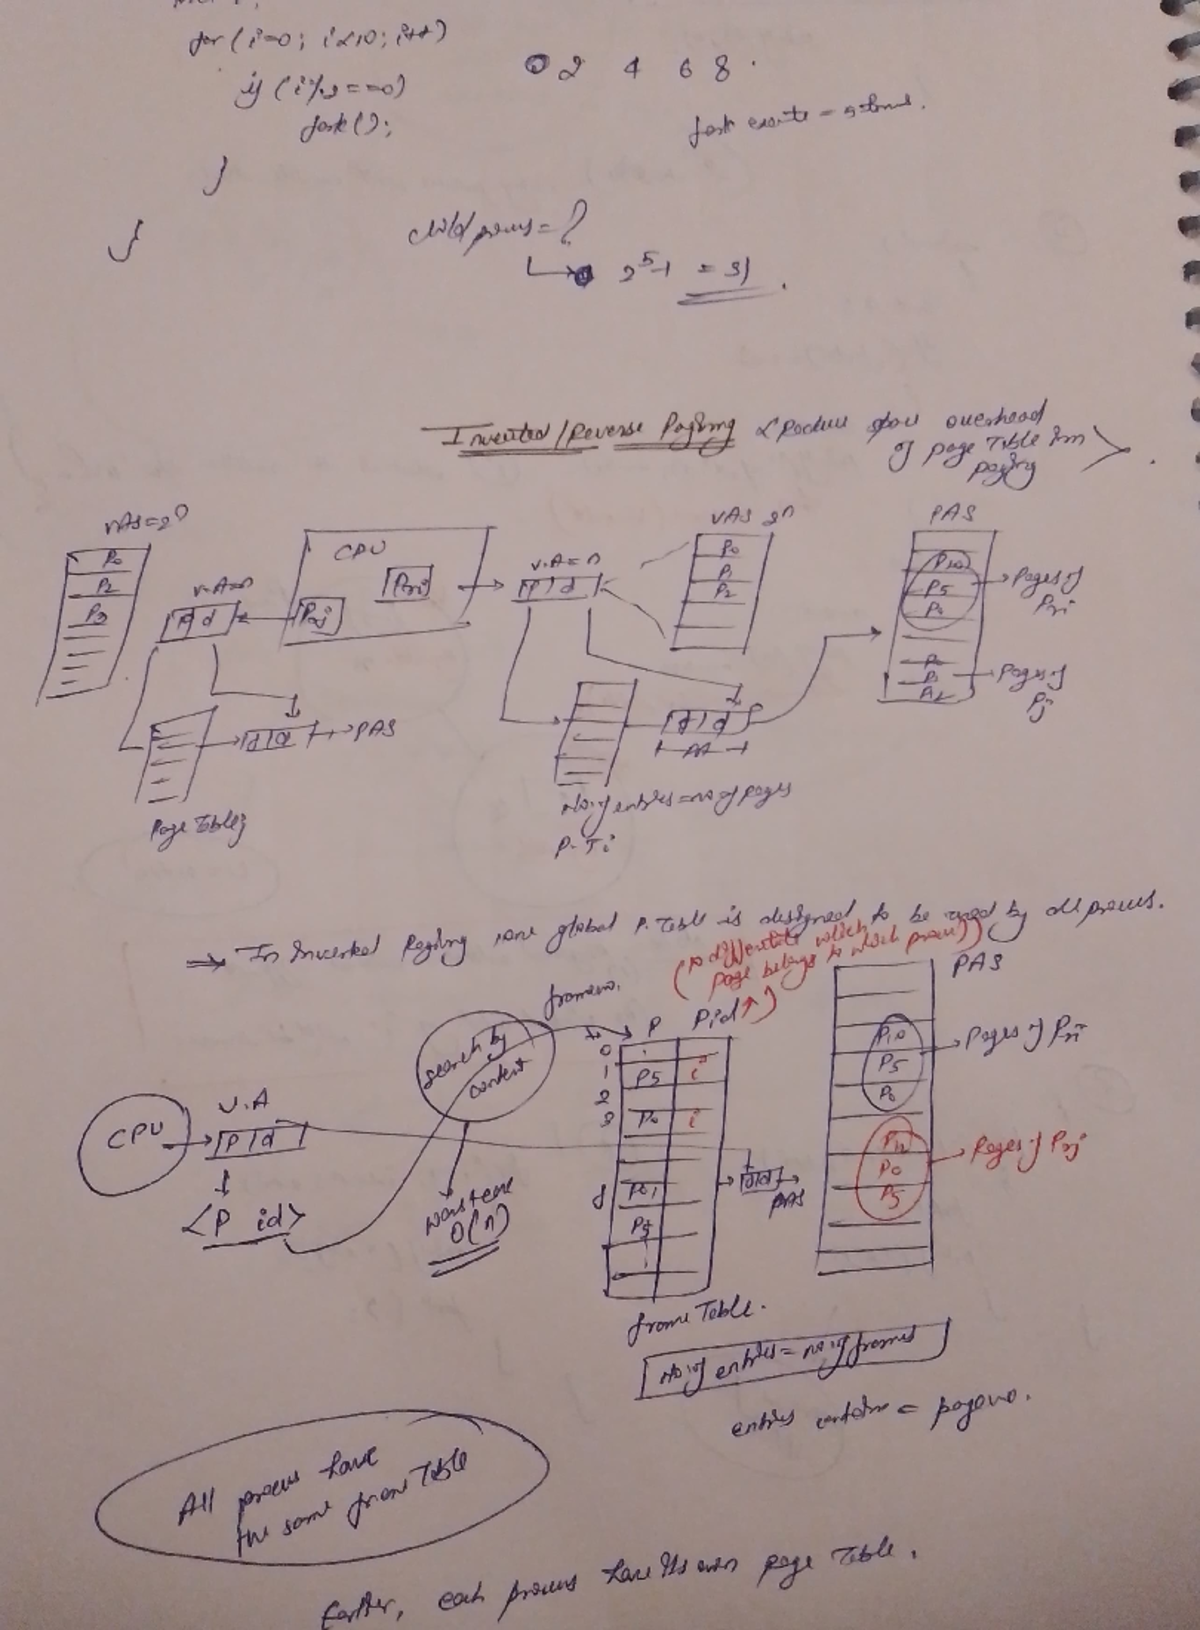 for (i=0; i<10; i++)
if (i%2==0)
fork();
}
}
0 2 4 6 8
fork execute = 5 times.
child process = ?
2^5-1 = 31.
Inverted/Reverse Paging <Reduce space overhead
of page Table in
paging>.
VAS=2^n
P0
P2
P3
V.A=n
P d
CPU
Pri
Prj
V.A=n
P d
VAS 2^n
P0
P1
P2
PAS
P10
P5
P0
Pages of
Pri
Pages of
Pj
f d
PAS
f d
Page Table j
No. of entries = no. of pages
P.Ti
⇒ In Inverted Paging, one global P.Table is designed to be used by all process.
(to differentiate which
page belongs to which process)
frame no.
P Pid
PAS
0
1 P5 i
2
3 P0 i
search by
content
CPU
V.A
P d
<P id>
worst case
O(n)
f d
PAS
P10
P5
P0
Pages of Pri
P12
P0
P5
Pages of Prj
frame Table.
No. of entries = no. of frames
entries contain = page no.
All process have
the same frame Table
Earlier, each process have its own page Table.